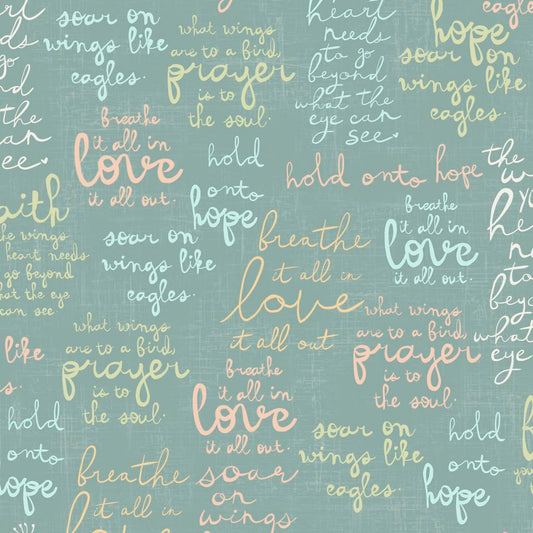 soar on
wings like
eagles.
what wings
are to a bird,
prayer
is to
the soul.
heart
needs
to go
beyond
what the
eye can
see
hope
soar on
wings like
eagles.
needs
to go
beyond
the
eye can
see
breathe
it all in
love
it all out.
hold
onto
hope
hold onto hope
breathe
it all in
love
it all out.
the
heart
needs
to
beyond
what
eye
faith
the wings
heart needs
go beyond
what the eye
can see
soar on
wings like
eagles.
breathe
it all in
love
it all out
what wings
are to a bird,
prayer
is to
the soul.
like
s.
what wings
are to a bird,
prayer
is to
the soul.
breathe
it all in
love
it all out.
hold
onto
hope
soar on
wings like
eagles.
hold
onto
hope
breathe
it all in
soar
on
wings